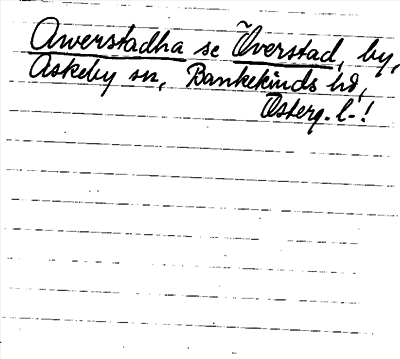 Awerstadha se Överstad, by,
Askeby sn, Bankekinds hd,
Österg. l.!